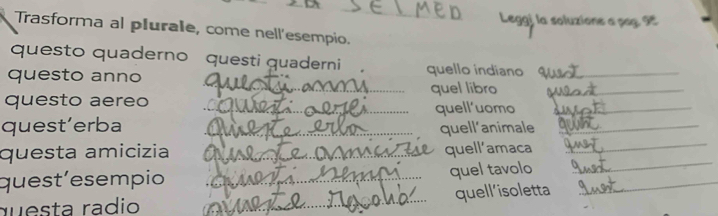 SEI MED
Leggi la soluzione a pag. 92
Trasforma al plurale, come nell'esempio.
questo quaderno questi quaderni
quello indiano quest
questo anno questi anni
quel libro quest
questo aereo questi aerei
quell'uomo
quest'erba queste erba
quell'animale
questa amicizia queste amicizie
quell'amaca quest
quest'esempio questi esempi
quel tavolo quest
questa radio queste
quell'isoletta quest